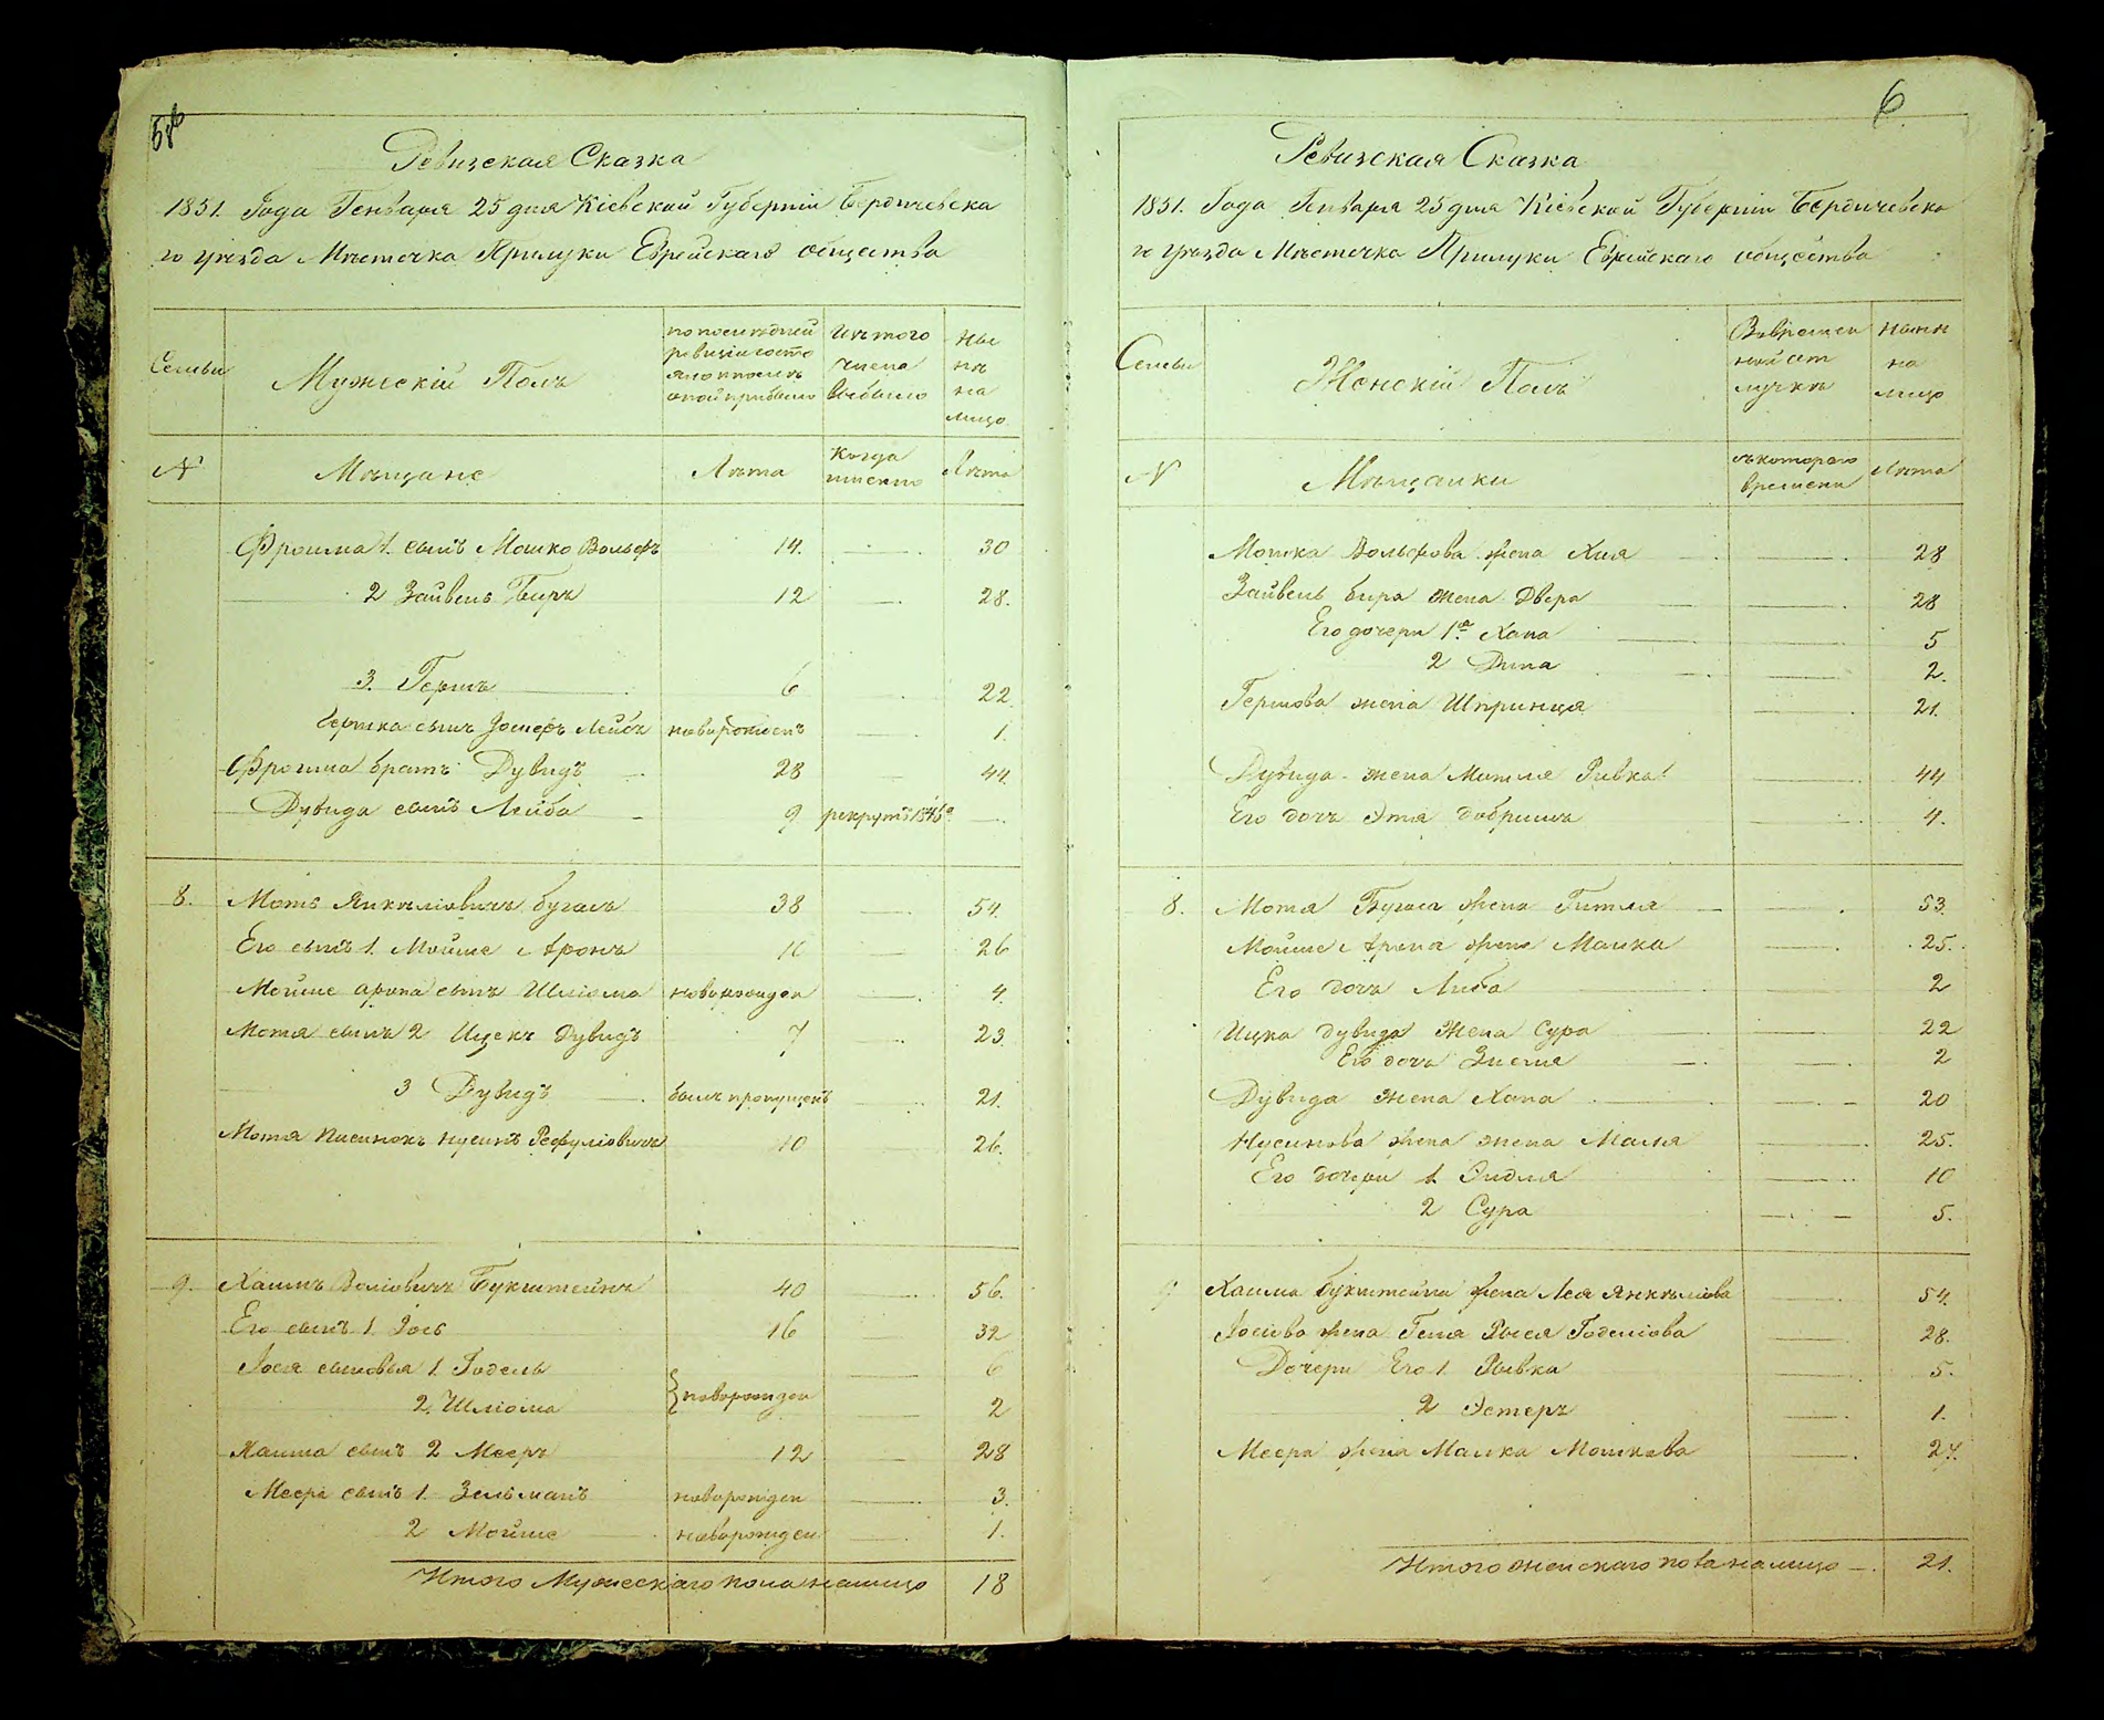 5 6
Ревизская Сказка
1851. Года Генваря 25 дня Кіевской Губерніи Бердичевска
го уѣзда Мѣстечка Прилуки Еврейскаго общества
Семьи
Мужескій Полъ
по послѣдней
ревизіи состо
яло и послѣ
оной прибыло
Изъ того
числа
выбыло
Ны
нѣ
на
лицо
№
Мѣщане
Лѣта
Когда
именно
Лѣта
Фроима 1. сынъ Мошко Вольфъ 14. 30
2 Зайвель Беръ 12 28.
3. Гершъ 6 22
Гершка сынъ Іосифъ Лейбъ новорожденъ 1.
Фроима братъ Дувидъ 28 44.
Дувида сынъ Лейба 9 рекрутъ 1846 г.
8. Мотя Янкеліовичъ Бугасъ 38 54.
Его сынъ 1. Мойше Аронъ 10 26
Мойше Арона сынъ Шліома новорожден 4.
Мотя сынъ 2 Ицекъ Дувидъ 7 23.
3 Дувидъ былъ пропущенъ 21.
Мотя Нусинъ Рефуліовичъ 10 26.
9. Хаимъ Воліовичъ Букштейнъ 40 56.
Его сынъ 1. Іось 16 32
Іося сыновья 1. Годель 6
новорожден
2. Шліома 2
Хаима сынъ 2 Мееръ 12 28
Меера сынъ 1. Зельманъ новорожден 3.
2 Мойше новорожден 1.
Итого Мужескаго пола налицо 18
6
Ревизская Сказка
1851. Года Генваря 25 дня Кіевской Губерніи Бердичевска
го уѣзда Мѣстечка Прилуки Еврейскаго общества
Семьи
Женскій Полъ
Вовремен
ной от
лучкѣ
Нынѣ
на
лицо
№
Мѣщанки
съ котораго
времени
Лѣта
Мошка Вольфова жена Хая 28
Зайвель Бера жена Двера 28
Его дочери 1я Хана 5
2 Дина 2.
Гершова жена Шпринця 21.
Дувида жена Матля Ривка 44
Его дочь Этя Добришъ 4.
8. Мотя Бугаса жена Гитля 53.
Мойше Арона жена Малка 25.
Его дочь Либа 2
Ицка Дувида жена Сура 22
Его дочь Знеся 2
Дувида жена Хана 20
Нусинова жена жена Маля 25.
Его дочери 1. Эидля 10
2 Сура 5.
9 Хаима Букштейна жена Лея Янкеліова 54.
Іосіова жена Геня Рыся Годеліова 28.
Дочери Его 1. Рывка 5.
2 Эстеръ 1.
Меера жена Малка Мошкова 27.
Итого женскаго пола налицо 21.